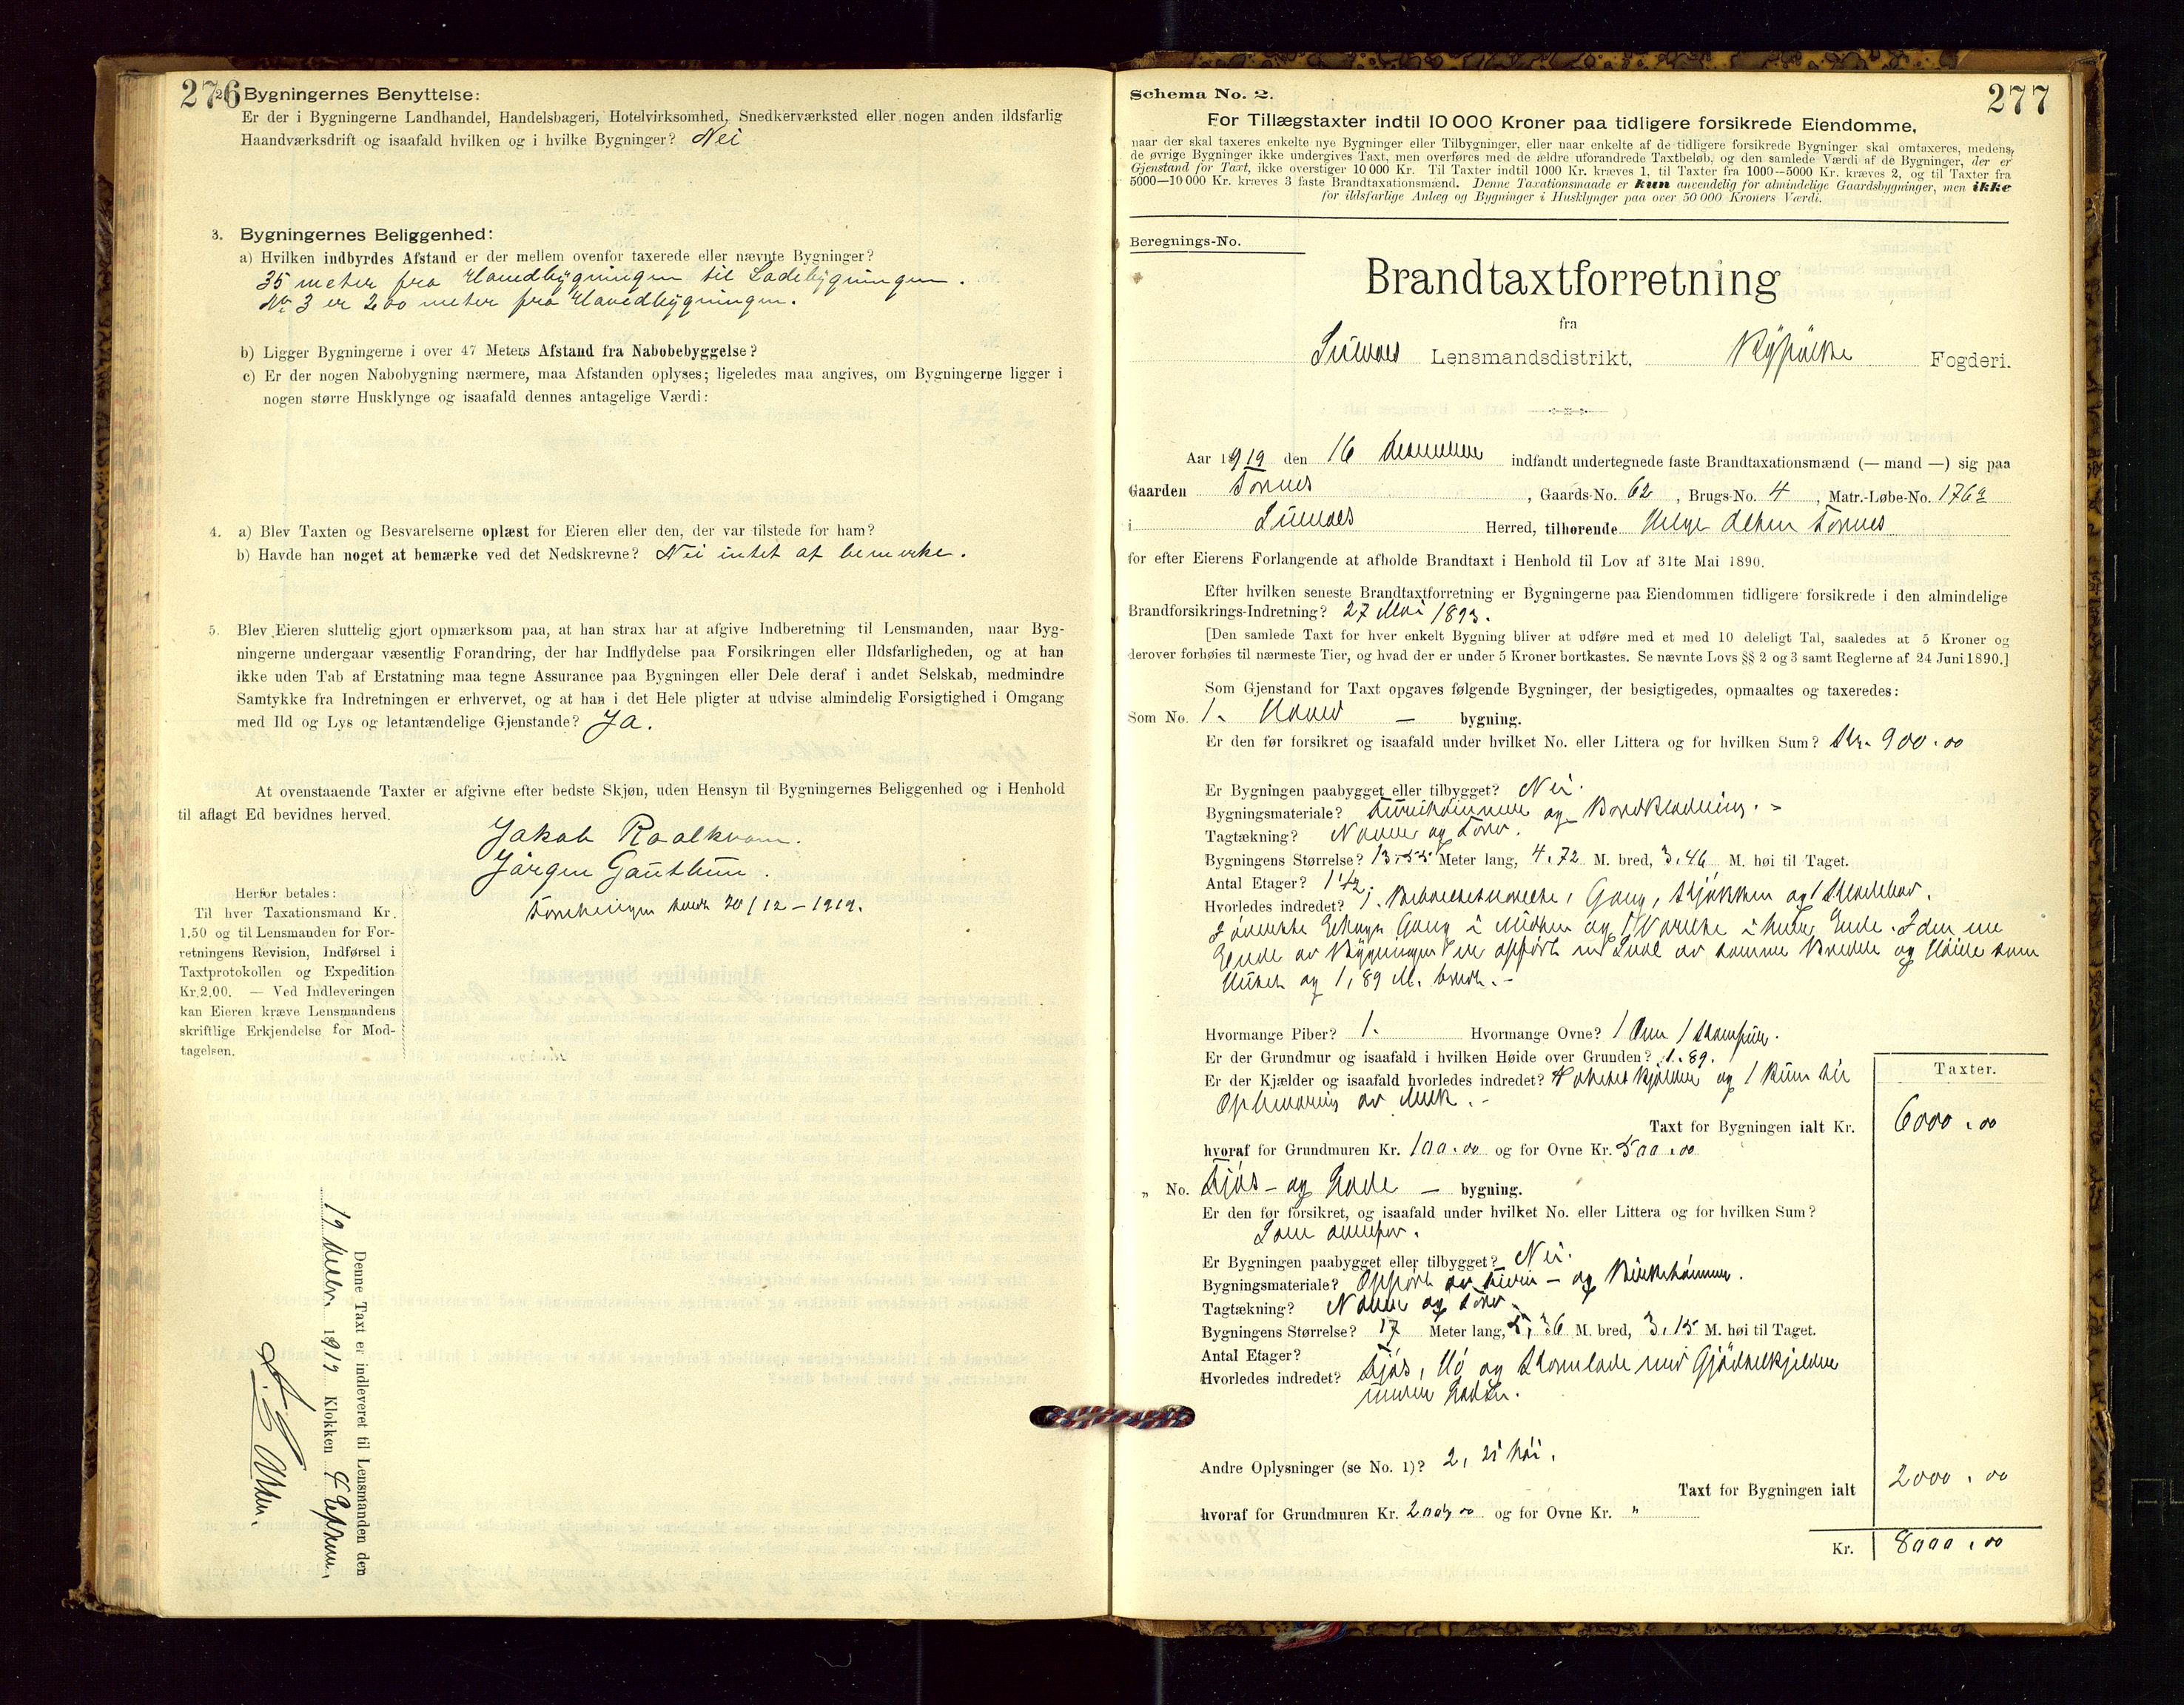 276
Bygningernes Benyttelse:
Er der i Bygningerne Landhandel, Handelsbageri, Hotelvirksomhed, Snedkerværksted eller nogen anden ildsfarlig
Haandværksdrift og isaafald hvilken og i hvilke Bygninger? Nei
3. Bygningernes Beliggenhed:
a) Hvilken indbyrdes Afstand er der mellem ovenfor taxerede eller nævnte Bygninger?
35 meter fra Hovedbygningen til Ladebygningen.
No 3 er 200 meter fra Hovedbygningen.
b) Ligger Bygningerne i over 47 Meters Afstand fra Nabobebyggelse?
c) Er der nogen Nabobygning nærmere, maa Afstanden oplyses; ligeledes maa angives, om Bygningerne ligger i
nogen større Husklynge og isaafald dennes antagelige Værdi:
4. a) Blev Taxten og Besvarelserne oplæst for Eieren eller den, der var tilstede for ham?
b) Havde han noget at bemærke ved det Nedskrevne? Nei intet at bemerke.
5. Blev Eieren sluttelig gjort opmærksom paa, at han strax har at afgive Indberetning til Lensmanden, naar Byg-
ningerne undergaar væsentlig Forandring, der har Indflydelse paa Forsikringen eller Ildsfarligheden, og at han
ikke uden Tab af Erstatning maa tegne Assurance paa Bygningen eller Dele deraf i andet Selskab, medmindre
Samtykke fra Indretningen er erhvervet, og at han i det Hele pligter at udvise almindelig Forsigtighed i Omgang
med Ild og Lys og letantændelige Gjenstande? Ja.
At ovenstaaende Taxter er afgivne efter bedste Skjøn, uden Hensyn til Bygningernes Beliggenhed og i Henhold
til aflagt Ed bevidnes herved.
Jakob Raalkvam.
Jörgen Gautun.
20/12-1919.
Herfor betales:
Til hver Taxationsmand Kr.
1,50 og til Lensmanden for For-
retningens Revision, Indførsel i
Taxtprotokollen og Expedition
Kr. 2,00. — Ved Indleveringen
kan Eieren kræve Lensmandens
skriftlige Erkjendelse for Mod-
tagelsen.
Denne Taxt er indleveret til Lensmanden den
19 1919 Klokken 4
277
Schema No. 2.
For Tillægstaxter indtil 10 000 Kroner paa tidligere forsikrede Eiendomme,
naar der skal taxeres enkelte nye Bygninger eller Tilbygninger, eller naar enkelte af de tidligere forsikrede Bygninger skal omtaxeres, medens
de øvrige Bygninger ikke undergives Taxt, men overføres med de ældre uforandrede Taxtbeløb, og den samlede Værdi af de Bygninger, der er
Gjenstand for Taxt, ikke overstiger 10 000 Kr. Til Taxter indtil 1000 Kr. kræves 1, til Taxter fra 1000—5000 Kr. kræves 2, og til Taxter fra
5000—10 000 Kr. kræves 3 faste Brandtaxationsmænd. Denne Taxationsmaade er kun anvendelig for almindelige Gaardsbygninger, men ikke
for ildsfarlige Anlæg og Bygninger i Husklynger paa over 50 000 Kroners Værdi.
Beregnings-No.
Brandtaxtforretning
fra
Lensmandsdistrikt, Ryfylke Fogderi.
Aar 1919 den 16 indfandt undertegnede faste Brandtaxationsmænd (— mand —) sig paa
Gaarden , Gaards-No. 62 , Brugs-No. 4 , Matr.-Løbe-No. 176
i Herred, tilhørende Helge Olsen
for efter Eierens Forlangende at afholde Brandtaxt i Henhold til Lov af 31te Mai 1890.
Efter hvilken seneste Brandtaxtforretning er Bygningerne paa Eiendommen tidligere forsikrede i den almindelige
Brandforsikrings-Indretning? 27 Mai 1893.
[Den samlede Taxt for hver enkelt Bygning bliver at udføre med et med 10 deleligt Tal, saaledes at 5 Kroner og
derover forhøies til nærmeste Tier, og hvad der er under 5 Kroner bortkastes. Se nævnte Lovs §§ 2 og 3 samt Reglerne af 24 Juni 1890.]
Som Gjenstand for Taxt opgaves følgende Bygninger, der besigtigedes, opmaaltes og taxeredes:
Som No. 1. Hoved — bygning.
Er den før forsikret og isaafald under hvilket No. eller Littera og for hvilken Sum? Kr. 900.00
Er Bygningen paabygget eller tilbygget? Nei.
Bygningsmateriale? Furutömmer og Bordklædning. -
Tagtækning? Næver og Torv.
Bygningens Størrelse? 13,55 Meter lang, 4,72 M. bred, 3,46 M. høi til Taget.
Antal Etager? 1 1/2.
Hvorledes indredet? 1. Beboelsesværelse, Gang, Kjökken og 1
Etage Gang i Midten og 1 Værelse i hver Ende. I den ene
Ende av Bygningen er opført en Sval av samme Bredde og Höide som
Huset og 1,89 M. bredt. -
Hvormange Piber? 1. Hvormange Ovne? 1 Ovn 1 Komfur.
Er der Grundmur og isaafald i hvilken Høide over Grunden? 1.89.
Er der Kjælder og isaafald hvorledes indredet? Potetkjelder og 1 Rum til
Opbevaring av Melk. -
Taxter.
Taxt for Bygningen ialt Kr. 6000.00
hvoraf for Grundmuren Kr. 100.00 og for Ovne Kr. 500.00
„ No. Fjös- og Lade — bygning.
Er den før forsikret, og isaafald under hvilket No. eller Littera og for hvilken Sum?
Som ovenfor.
Er Bygningen paabygget eller tilbygget? Nei.
Bygningsmateriale? Opført av Furu- og Birketömmer.
Tagtækning? Næver og Torv.
Bygningens Størrelse? 17 Meter lang, 5,36 M. bred, 3,15 M. høi til Taget.
Antal Etager?
Hvorledes indredet? Fjös, Hö og Kornlade med Gjödselkjelder
under
Andre Oplysninger (se No. 1)? 2,25 höi.
Taxt for Bygningen ialt 2000.00
hvoraf for Grundmuren Kr. 200,00 og for Ovne Kr. "
Kr. 8000.00